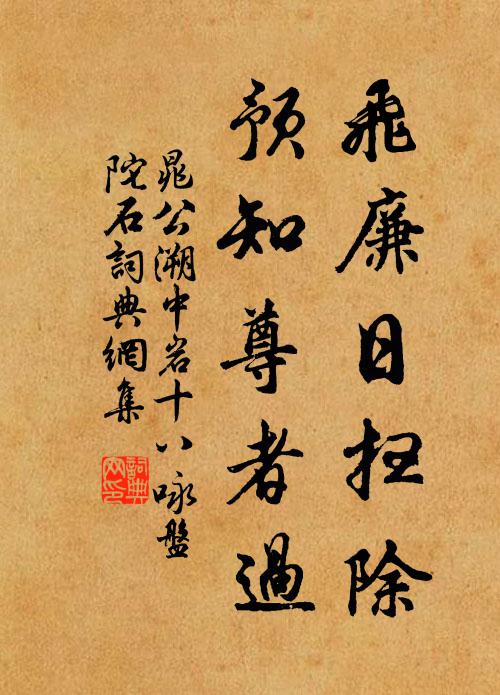 飛廉日扫除
預知尊者過
晁公溯中岩十八咏盤
陀石詞典網集
詞典
网印